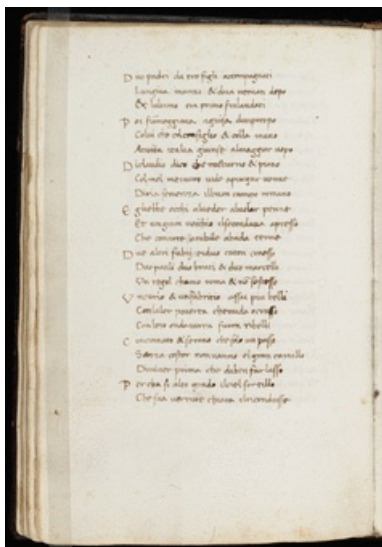 Duo padri da tre figli accompagnati
Lungiua inanzi & dua uenian dopo
Et lultimo era primo fralaudati
Poi fiameggiaua aguisa dunpiropo
Colui che colconsiglio & colla mano
Atutta italia giunse almaggior uopo
Diclaudio dico che nocturno & piano
Colmetauro uide apurgar uenne
Diria semenza ilbuon campo romano
Eglhebbe occhi alueder aluolar penne
Et ungran uecchio ilsecondaua apresso
Che conarte anibale abada tenne
Due altri fabij enduo caton conesso
Duo paoli duo bruti & duo marcello
Un regol chamo roma & nō sestesso
Uncurio & unfabritio assai piu belli
Conlalor pouerta chemida ocrasso
Conloro ondauirtu furon ribelli
Cincinnato & serano che solo un passo
Senza costor nonuanno elgran camillo
Diuiuer prima che diben far lasso
Percha si alto grado ilciel sortillo
Che sua uertute chiara ilricondusse